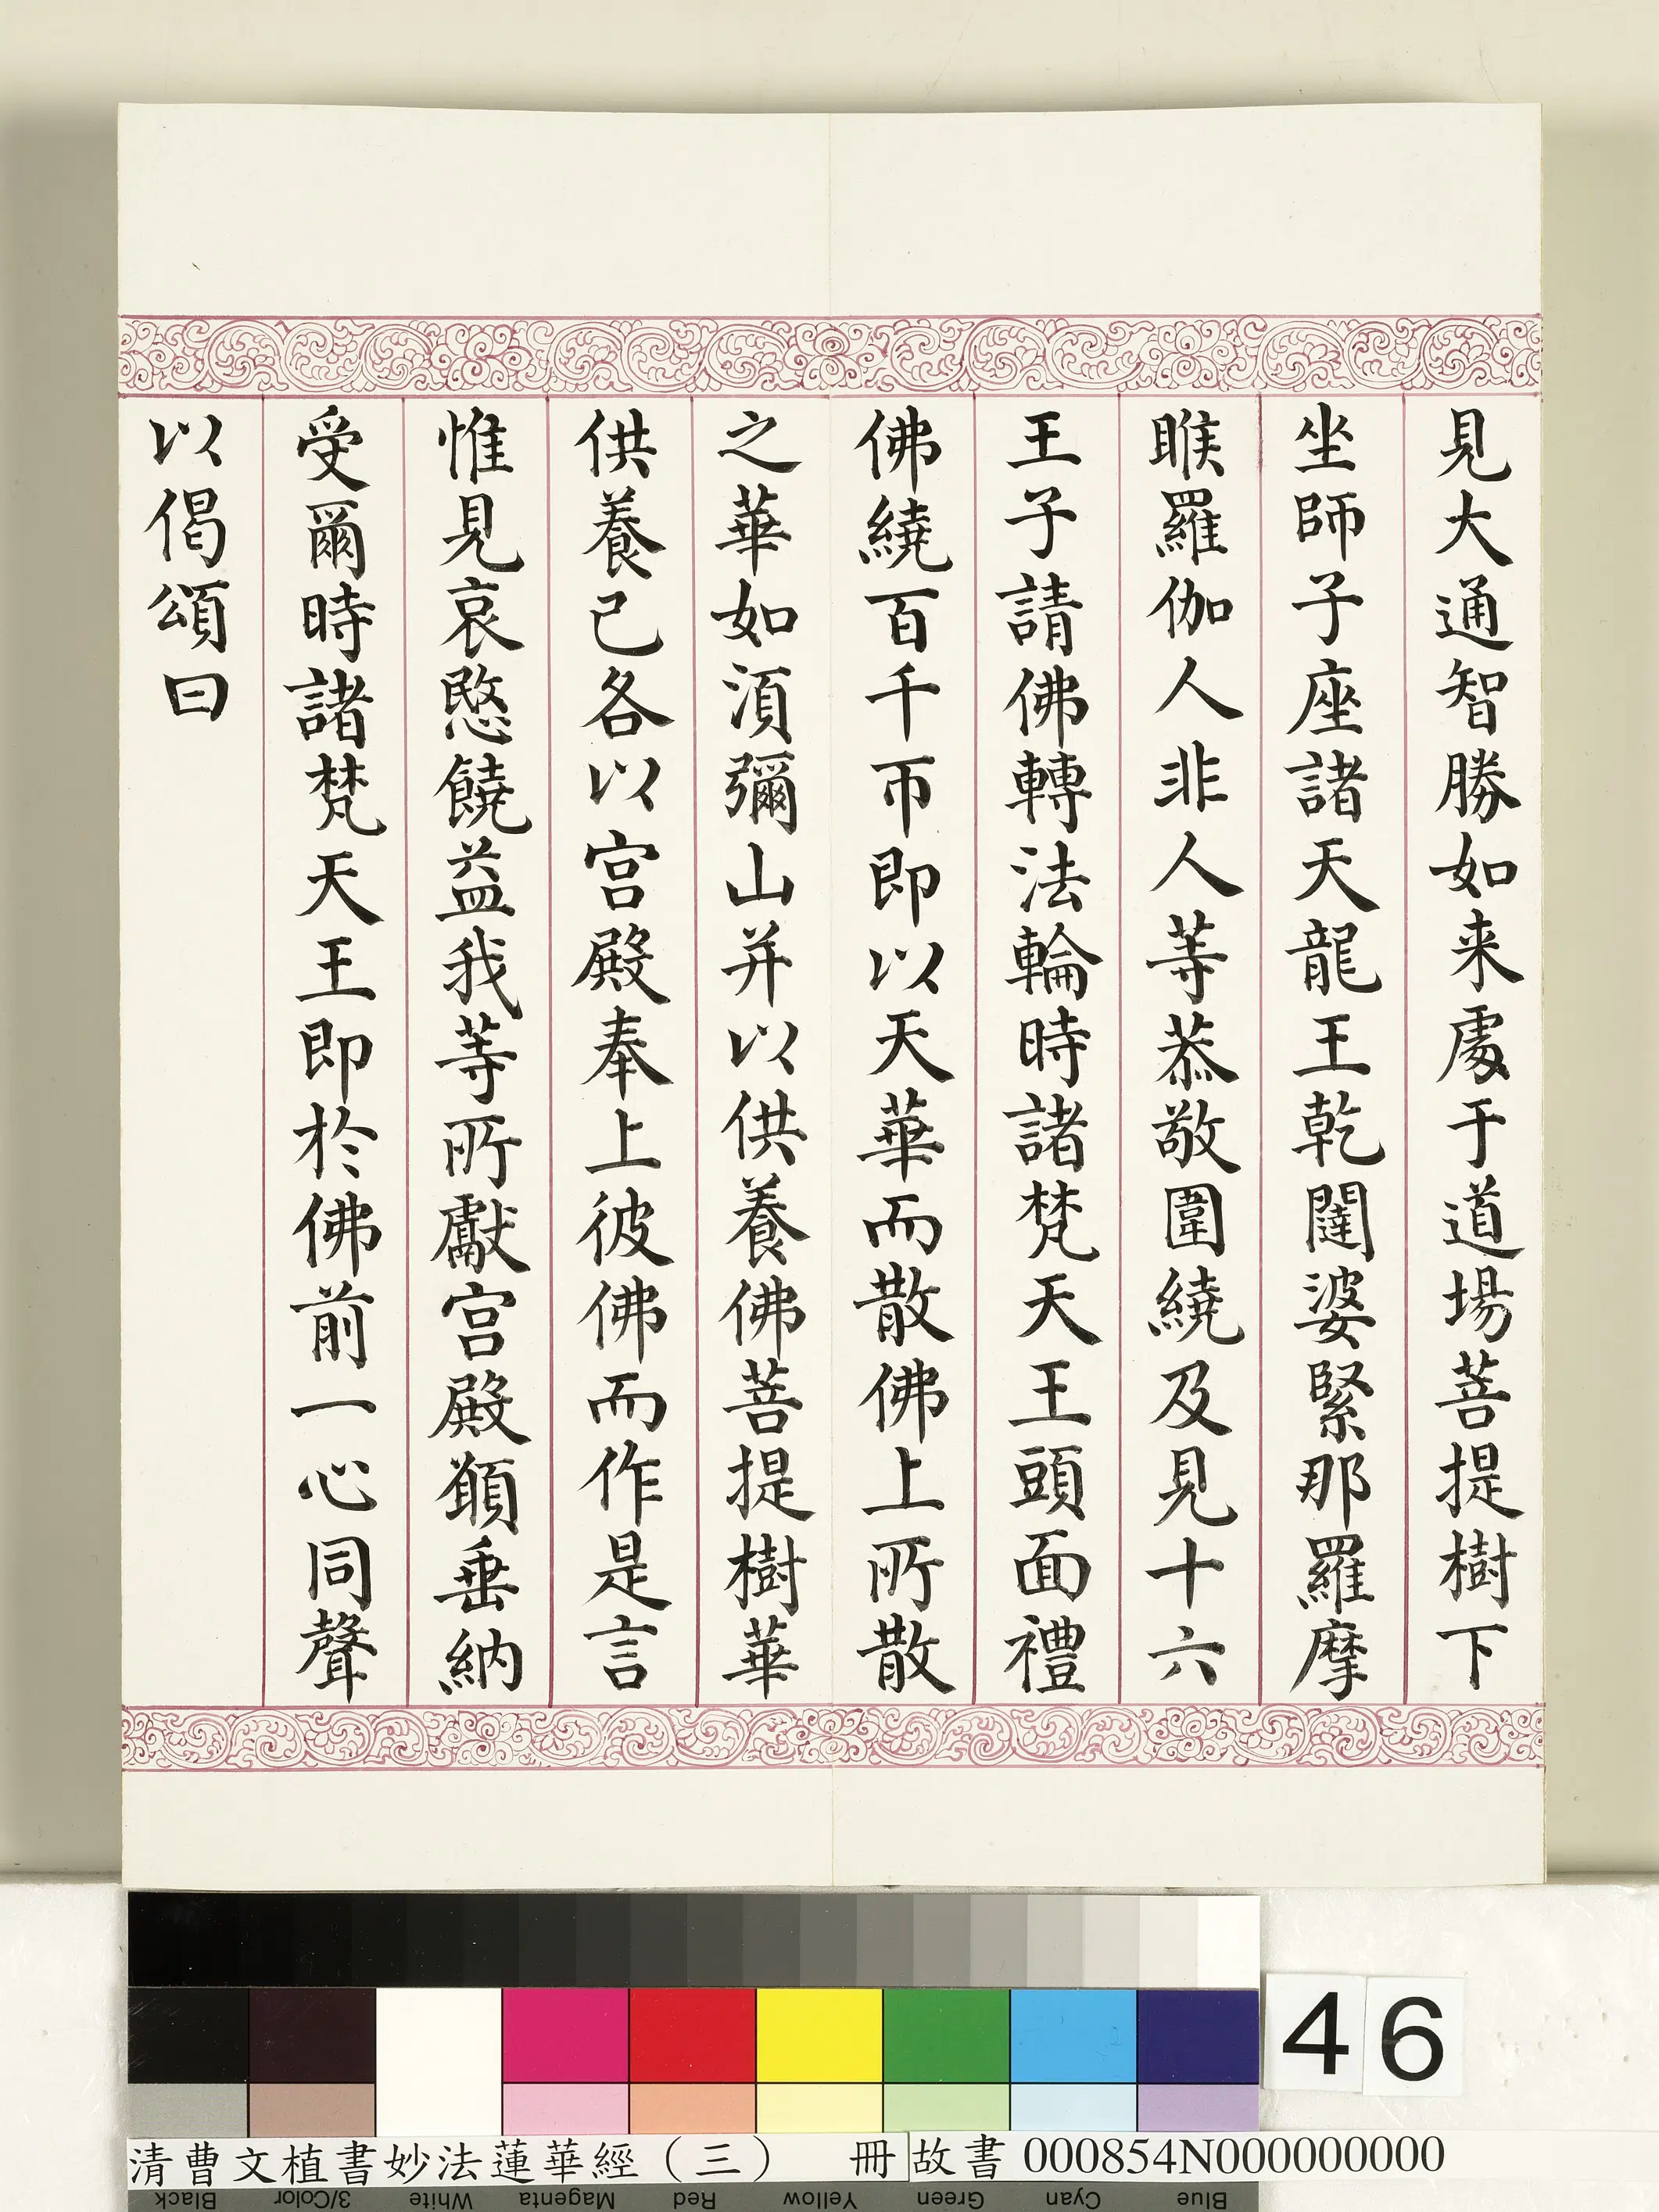 見大通智勝如来處于道場菩提樹下
坐師子座諸天龍王乾闥婆緊那羅摩
睺羅伽人非人等恭敬圍繞及見十六
王子請佛轉法輪時諸梵天王頭面禮
佛繞百千帀即以天華而散佛上所散
之華如湏彌山并以供養佛菩提樹華
供養已各以宮殿奉上彼佛而作是言
惟見哀愍饒益我等所獻宮殿願垂納
受爾時諸梵天王即於佛前一心同聲
以偈頌曰
46
清曹文植書妙法蓮華經（三） 冊 故書 000854N000000000
Black 3/Color White Magenta Red Yellow Green Cyan Blue